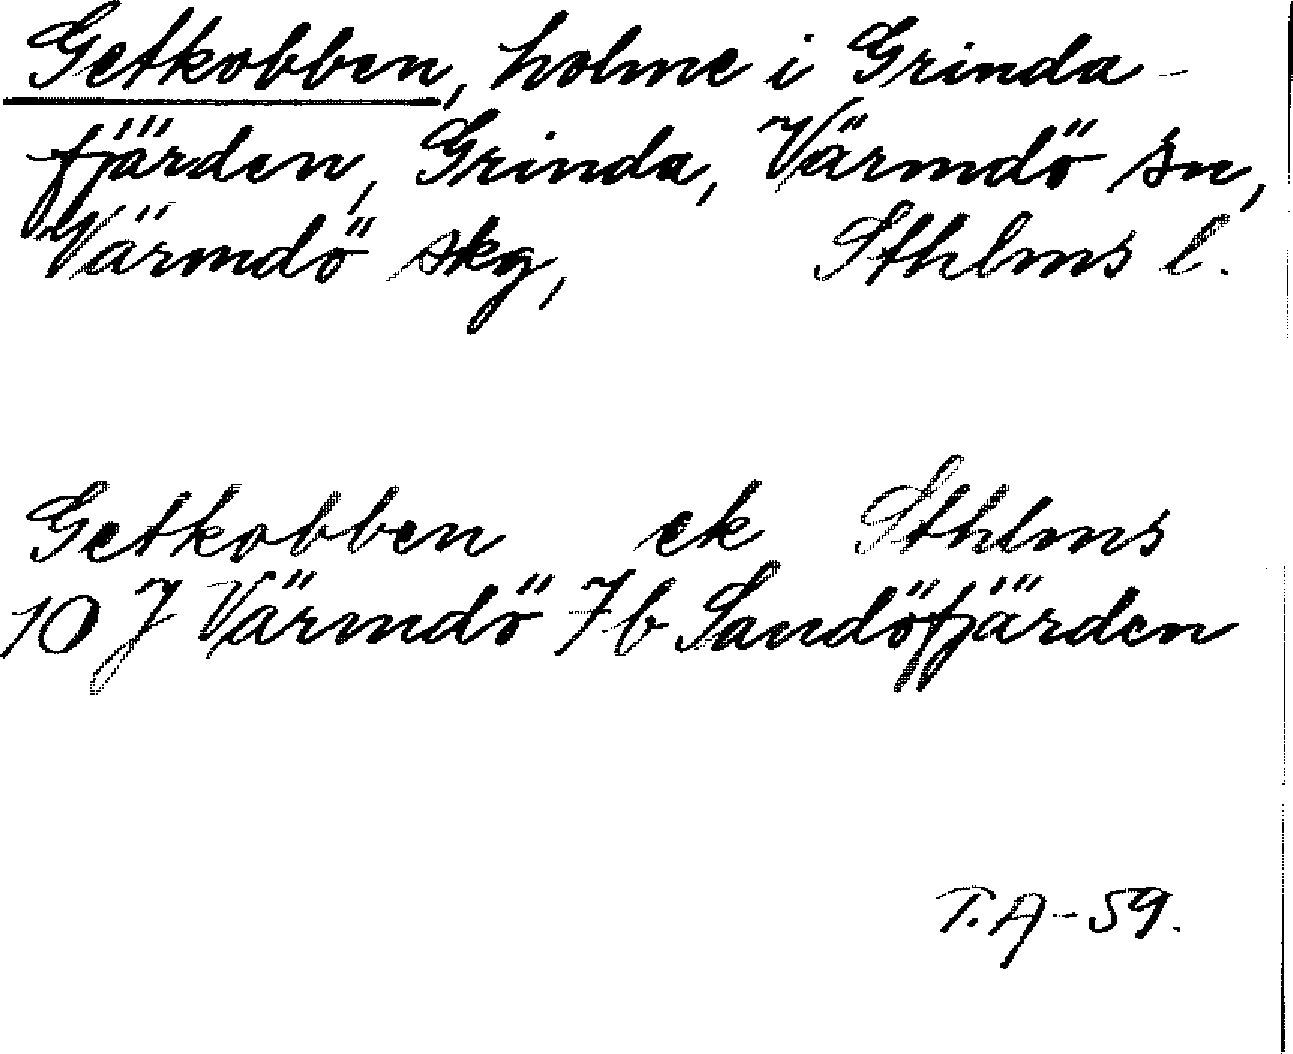 Getkobben, holme i Grinda-
fjärden, Grinda, Värmdö sn,
Värmdö skg, Sthlms l.
Getkobben ek Sthlms
10 J Värmdö 7b Sandöfjärden
T.A-59.